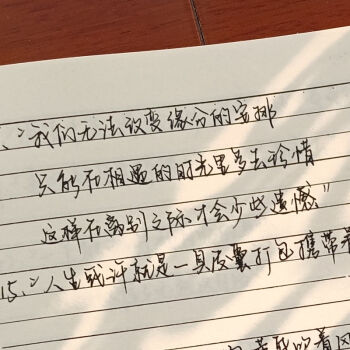 、"我们无法改变缘分的安排
只能在相遇的时光里多去珍惜
这样在离别之际才会少些遗憾"
15、"人生或许就是一具皮囊打包携带着
着风